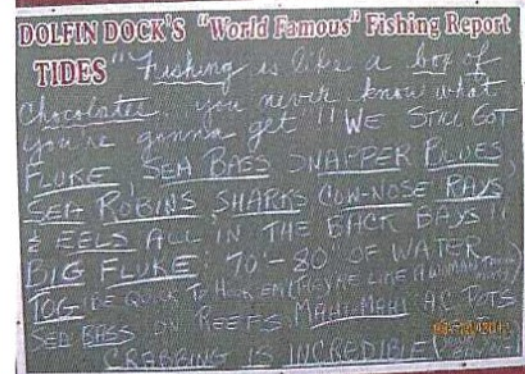 DOLFIN DOCK'S "World Famous" Fishing Report
TIDES "Fishing is like a box of
Chocolates, you never know what
you're gonna get"!! WE STILL GOT
FLUKE, SEA BASS SNAPPER BLUES,
SEA ROBINS, SHARKS COW-NOSE RAYS
& EELS ALL IN THE BACK BAYS!!
BIG FLUKE: 70'-80' OF WATER
TOG: (BE QUICK TO HOOK EM (THEY'RE LIKE A WOMAN
SEA BASS ON REEFS MAHI-MAHI AC POTS
CRABBING IS INCREDIBLE